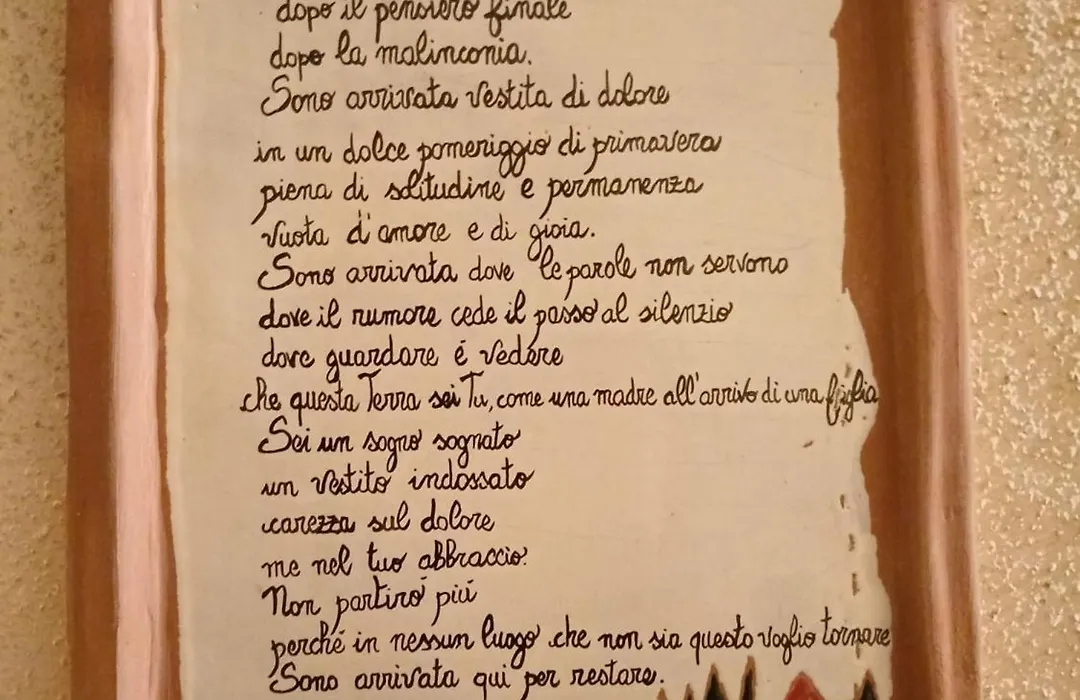 dopo il pensiero finale
dopo la malinconia.
Sono arrivata vestita di dolore
in un dolce pomeriggio di primavera
piena di solitudine e permanenza
vuota d'amore e di gioia.
Sono arrivata dove le parole non servono
dove il rumore cede il passo al silenzio
dove guardare é vedere
che questa Terra sei Tu, come una madre all'arrivo di una figlia
Sei un sogno sognato
un vestito indossato
carezza sul dolore
me nel tuo abbraccio.
Non partiró piú
perché in nessun luogo che non sia questo voglio tornare
Sono arrivata qui per restare.